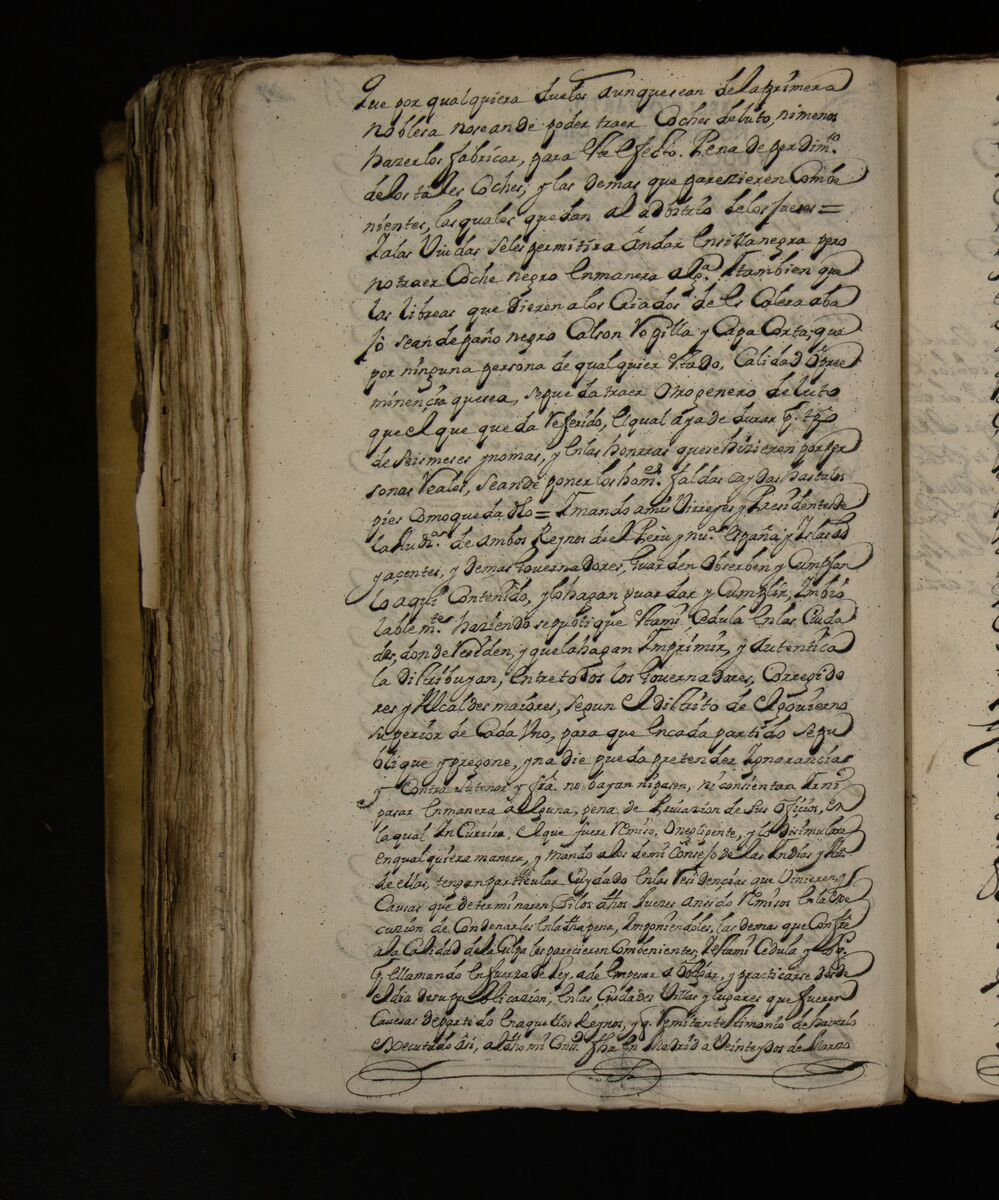 Que por qualquiera duelos aunque sean de la primera
noblesa no se an de poder traer Coches de luto, ni menos
hazerlos fabricar, para este efecto. Pena de perdim.to
de los tales Coches, y las demas que parezieren Combe
nientes, las quales quedan al adbitrio de los Jueses =
I a las Viudas se les permitira andar en silla negra pero
no traer Coche negro en manera alg.a I tambien que
las libreas que dieren a los Criados de Es Calera aba
Jo sean de paño negro Calson Ropilla y Capa Corta, que
por ninguna persona de qualquier estado, Calidad ô pree
minençia que sea, se pueda traer otro genero de luto
que el que queda Referido, el qual aya de durar p.r tpõ
de seis meses y no mas, y en las honrras que se hizieren por per
sonas Reales, se ande poner los hom.es faldas caydas hasta los
pies Como queda dho = I mando a mis Virreyes y Presidentes de
las Audi.as de ambos Reynos de el Perù y nu.a España y Islas ad
yaçentes, y demas Governadores, Guarden Observen y Cumplan
lo aqui Contenido, y lo hagan guardar y Cumplir, Imbio
lablem.te haziendo se publique esta mi Cedula en las Ciuda
des, donde Residen, y que la hagan Imprimir, y Autentica
la distribuyan, entre todos los Governadores, Corregido
res y Alcaldes maiores, segun el distrito de el govierno
superior de Cada Uno, para que en cada partido se pu
blique y pregone, y nadie pueda pretender Ignorançia
y Contra su tenor y fra. no bayan ni pasen, ni concientan Ir ni
pasar en manera alguna, pena de Privazion de sus ofiçios, en
la qual In Currira, el que fuere Remiso, O negligente, y lo disimulare
en qual quiera manera, y Mando a los de mi Consejo de las Indias y
de ellas, tengan particular Cuydado en las Residençias que Vinieren, y
Causas que determinaren si los dhos Jueses an sido Remisos en la exe
cuzion de Condenarles en la dha pena, Imponiendoles, las demas que Confre
a la Calidad de la Culpa les parecieren Combenientes, esta mi Cedula y
en fuerza de Ley, a de empesar a Obligar, y practicarse desde
el dia de su publicazion, en las Ciudades Villas y lugares que fueren
Cavesas de partido en aquellos Reynos, y q. Remitan testimonio de haverlo
executado assi, al dho mi Cons.o fha en Madrid a Veinte y dos de Marzo